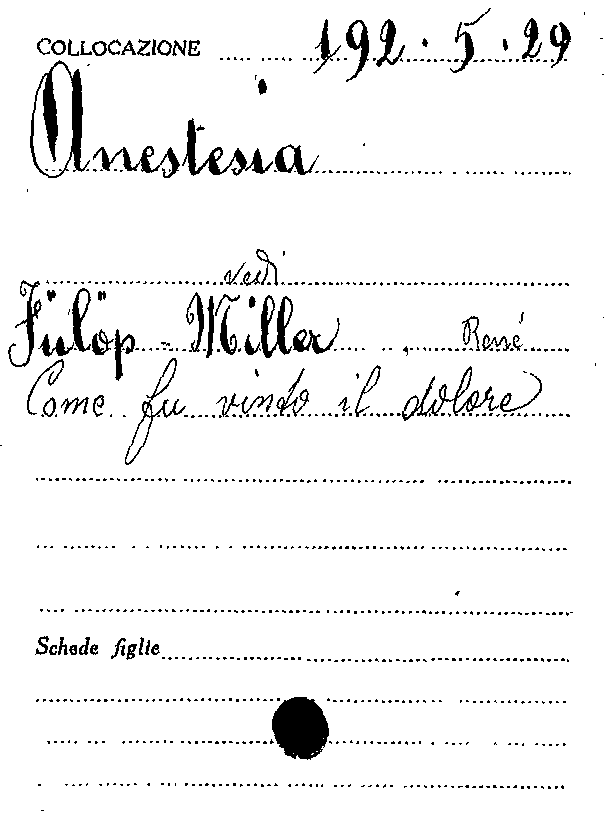 COLLOCAZIONE 192.5.29
Anestesia
vedi
Fülöp-Miller, René
Come fu vinto il dolore
Schede figlie